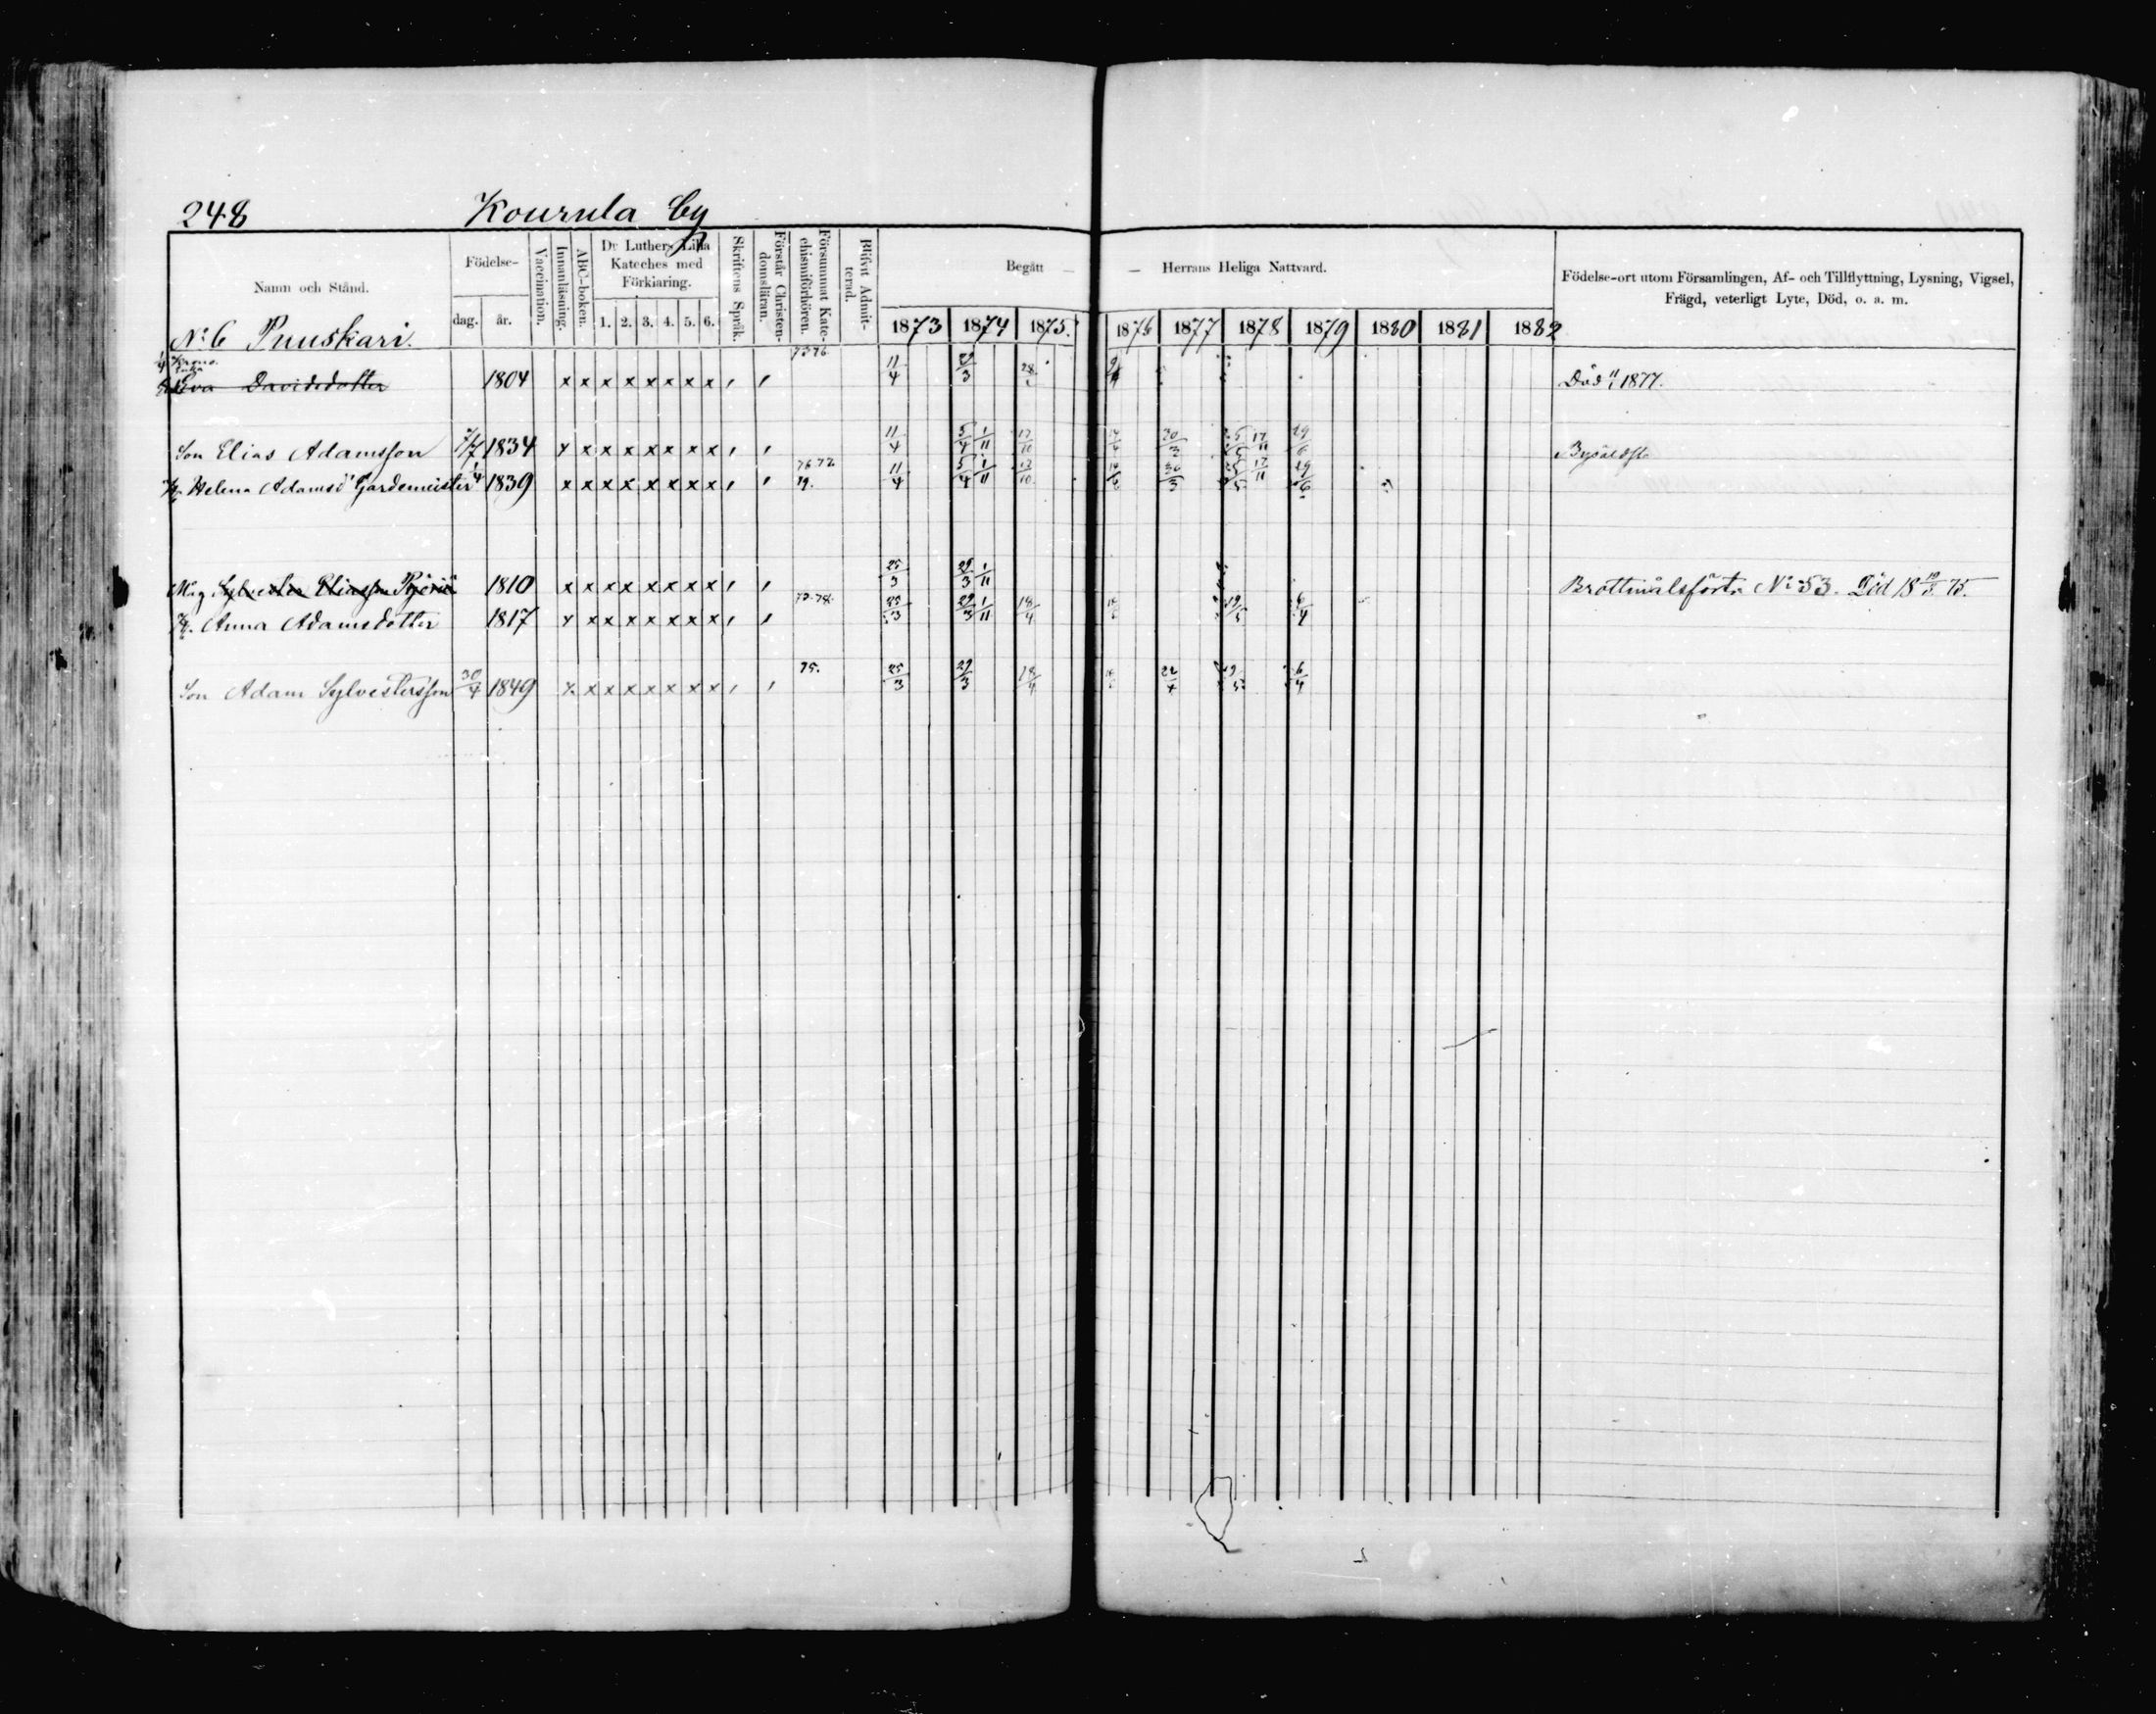 248 Kourula by
Namn och Stånd.
Födelse-
dag.
år.
Vaccination.
Innanläsning.
ABC-boken.
Dr Luthers Lilla
Kateches med
Förklaring.
1. 2. 3. 4. 5. 6.
Skriftens Språk.
Förstår Christen-
domsläran.
Försummat Kate-
chismiförhören.
Blifvit Admit-
terad.
Begått — — Herrans Heliga Nattvard.
1873 1874 1875. 1876 1877 1878 1879 1880 1881 1882
Födelse-ort utom Församlingen, Af- och Tillflyttning, Lysning, Vigsel,
Frägd, veterligt Lyte, Död, o. a. m.
No 6 Puuskari.
Eva Davidsdotter 1804 x x x x x x x x 11/4 29/3 Död 1877.
Son Elias Adamsson 1834 x x x x x x x x 11/4 5/4 1/11 13/10 30/3 17/11 29/6
Helena Adamsd Gardemeister 1839 x x x x x x x x 76 77 79. 11/4 5/4 1/11 13/10 30/3 17/11 29/6
Måg Sylvester Eliasson 1810 x x x x x x x x 25/3 29/3 1/11 Brottmålsförtn No 53. Död 75.
Anna Adamsdotter 1817 x x x x x x x x 25/3 29/3 1/11 18/4 6/4
Son Adam Sylvestersson 30/4 1849 x x x x x x x x 75. 25/3 29/3 18/4 6/4